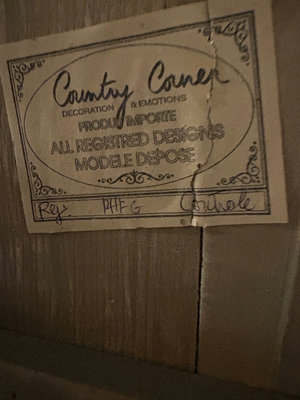 Country Corner
DECORATION & EMOTIONS
PRODUIT IMPORTE
ALL REGISTRED DESIGNS
MODELE DEPOSE
Ref: